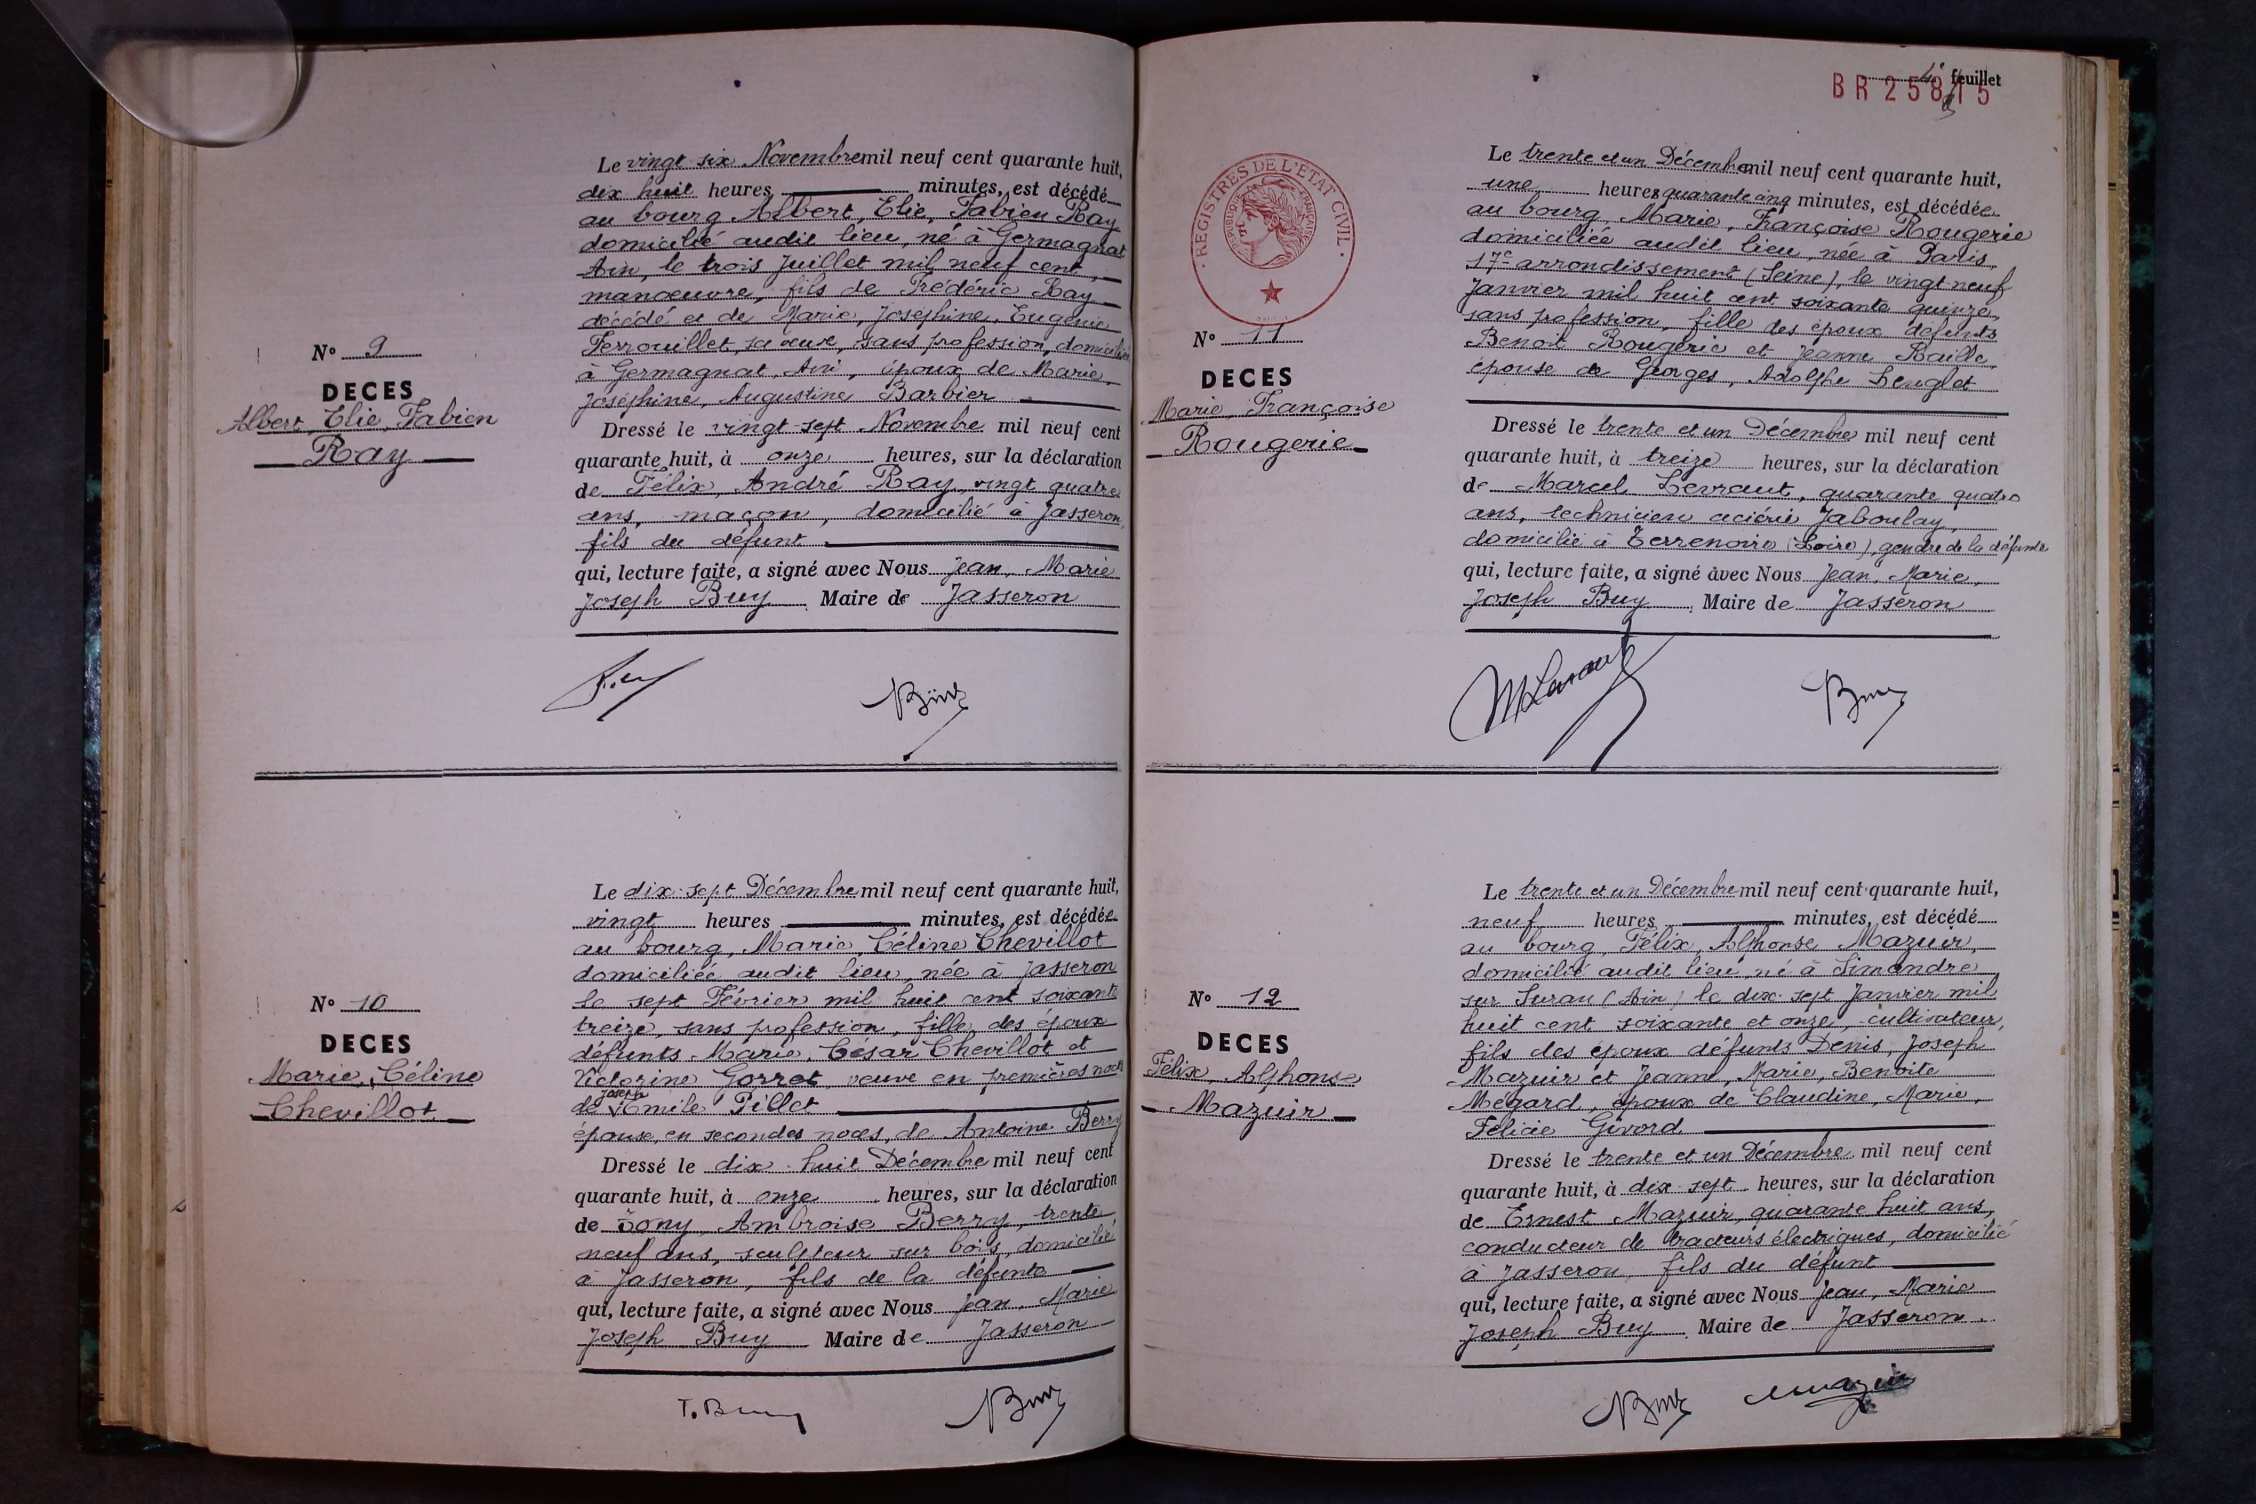 Le vingt six Novembre mil neuf cent quarante huit,
dix huit heures, minutes, est décédé
au bourg Albert, Elie, Fabien Ray
domicilié audit lieu, né à Germagnat
Ain, le trois Juillet mil neuf cent,
manœuvre, fils de Frédéric Ray
décédé et de Marie, Josephine, Eugénie
Ferrouillet, sa veuve, sans profession, domiciliée
à Germagnat, Ain, époux de Marie,
Joséphine, Augustine Barbier
N° 9
DECES
Albert, Elie, Fabien
Ray
Dressé le vingt-sept Novembre mil neuf cent
quarante huit, à onze heures, sur la déclaration
de Félix, André Ray, vingt quatre
ans, maçon, domicilié à Jasseron,
fils du défunt
qui, lecture faite, a signé avec Nous Jean, Marie
Joseph Buy Maire de Jasseron
Buy
Le dix-sept Décembre mil neuf cent quarante huit,
vingt heures minutes, est décédée
au bourg, Marie, Céline Chevillot
domiciliée audit lieu, née à Jasseron
le sept Février mil huit cent soixante
treize, sans profession, fille des époux
défunts Marie, César Chevillot et
Victorine Gorret, veuve en premières noces
Joseph
de Emile Pillet
épouse, en secondes noces, de Antoine Berry
N° 10
DECES
Marie, Céline
Chevillot
Dressé le dix-huit Décembre mil neuf cent
quarante huit, à onze heures, sur la déclaration
de Tony, Ambroise Berry, trente
neuf ans, sculpteur sur bois, domicilié
à Jasseron, fils de la défunte
qui, lecture faite, a signé avec Nous Jean, Marie
Joseph Buy Maire de Jasseron
T. Berry
Buy
4e feuillet
BR 25815
REGISTRES DE L'ETAT CIVIL
REPUBLIQUE FRANÇAISE
Le trente et un Décembre mil neuf cent quarante huit,
une heures quarante cinq minutes, est décédée
au bourg, Marie, Françoise Rougerie
domiciliée audit lieu, née à Paris,
17e arrondissement (Seine), le vingt-neuf
Janvier mil huit cent soixante quinze,
sans profession, fille des époux défunts
Rougerie et Jeanne
épouse de Georges, Adolphe Lenglet
N° 11
DECES
Marie, Françoise
Rougerie
Dressé le trente et un Décembre mil neuf cent
quarante huit, à treize heures, sur la déclaration
de Marcel Levraut, quarante quatre
ans, technicien aciérie Jaboulay,
domicilié à Terrenoire (Loire), gendre de la défunte
qui, lecture faite, a signé avec Nous Jean, Marie,
Joseph Buy Maire de Jasseron
Buy
Le trente et un Décembre mil neuf cent quarante huit,
neuf heures minutes, est décédé
au bourg, Félix, Alphonse Mazuir,
domicilié audit lieu, né à Simandre
sur Suran (Ain) le dix-sept Janvier mil
huit cent soixante et onze, cultivateur,
fils des époux défunts Denis, Joseph
Mazuir et Jeanne, Marie, Benoite
Mégard, époux de Claudine, Marie,
Félicie Givord
N° 12
DECES
Félix, Alphonse
Mazuir
Dressé le trente et un Décembre mil neuf cent
quarante huit, à dix-sept heures, sur la déclaration
de Ernest Mazuir, quarante huit ans,
conducteur de tracteurs électriques, domicilié
à Jasseron, fils du défunt
qui, lecture faite, a signé avec Nous Jean, Marie
Joseph Buy Maire de Jasseron
Buy
Mazuir